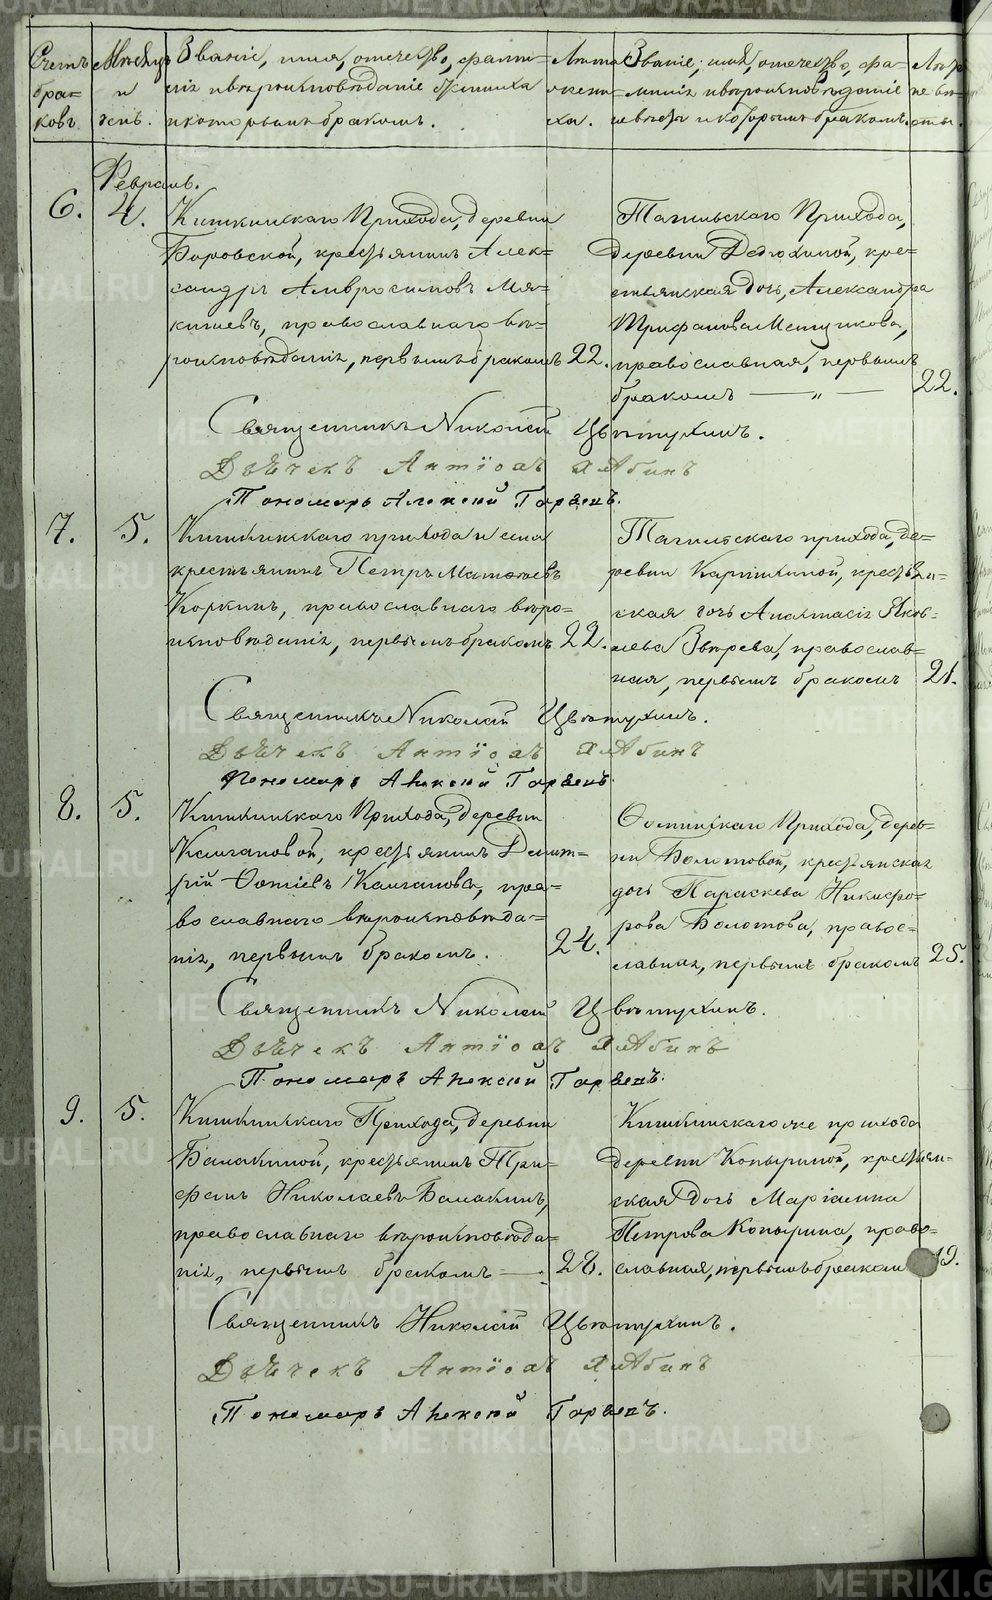 Счетъ браковъ.
Мѣсяцъ и день.
Званіе, имя, отечество, фами-
лія и вѣроисповѣданіе жениха
и которымъ бракомъ.
Лѣта жениха.
Званіе, имя, отечество, фа-
милія и вѣроисповѣданіе
невѣсты и которымъ бракомъ.
Лѣта невѣсты.
Февраль.
6. 4.
Кишкинскаго Прихода, деревни
Боровской, крестьянинъ Алек-
сандръ Амвросимовъ Мя-
кишевъ, православнаго вѣ-
роисповѣданія, первымъ бракомъ 22.
Тагильскаго Прихода,
деревни Дедюхиной, кре-
стьянская дочь, Александра
Трифанова
православная, первымъ
бракомъ — „ — 22.
Священникъ Николай Цвѣтухинъ.
Дьячекъ Антіохъ Хлябинъ
Пономарь Алексій
7. 5.
Кишкинскаго прихода и села
крестьянинъ Петръ Матвѣевъ
Коркинъ, православнаго вѣро-
исповѣданія, первымъ бракомъ 22.
Тагильскаго прихода, де-
ревни Карпихиной, крестьян-
ская дочь Анастасія Яков-
лева Звѣрева, православ-
ная, первымъ бракомъ 21.
Священникъ Николай Цвѣтухинъ.
Дьячекъ Антіохъ Хлябинъ
Пономарь Алексій
8. 5.
Кишкинскаго Прихода, деревни
Калгановой, крестьянинъ Димит-
рій Фотіевъ Калгановъ, пра-
вославнаго вѣроисповѣда-
нія, первымъ бракомъ. 24.
Фоминскаго Прихода, дерев-
ни Болотовой, крестьянская
дочь Параскева Никифо-
рова Болотова, правос-
лавная, первымъ бракомъ 25.
Священникъ Николай Цвѣтухинъ.
Дьячекъ Антіохъ Хлябинъ
Пономарь Алексій
9. 5.
Кишкинскаго Прихода, деревни
Балакиной, крестьянинъ Три-
фанъ Николаевъ Балакинъ,
православнаго вѣроисповѣда-
нія, первымъ бракомъ — . 28.
Кишкинскаго же прихода
деревни Копыриной, крестьян-
ская дочь Маріамна
Петрова Копырина, право-
славная, первымъ бракомъ 19.
Священникъ Николай Цвѣтухинъ.
Дьячекъ Антіохъ Хлябинъ
Пономарь Алексій
METRIKI.GASO-URAL.RU